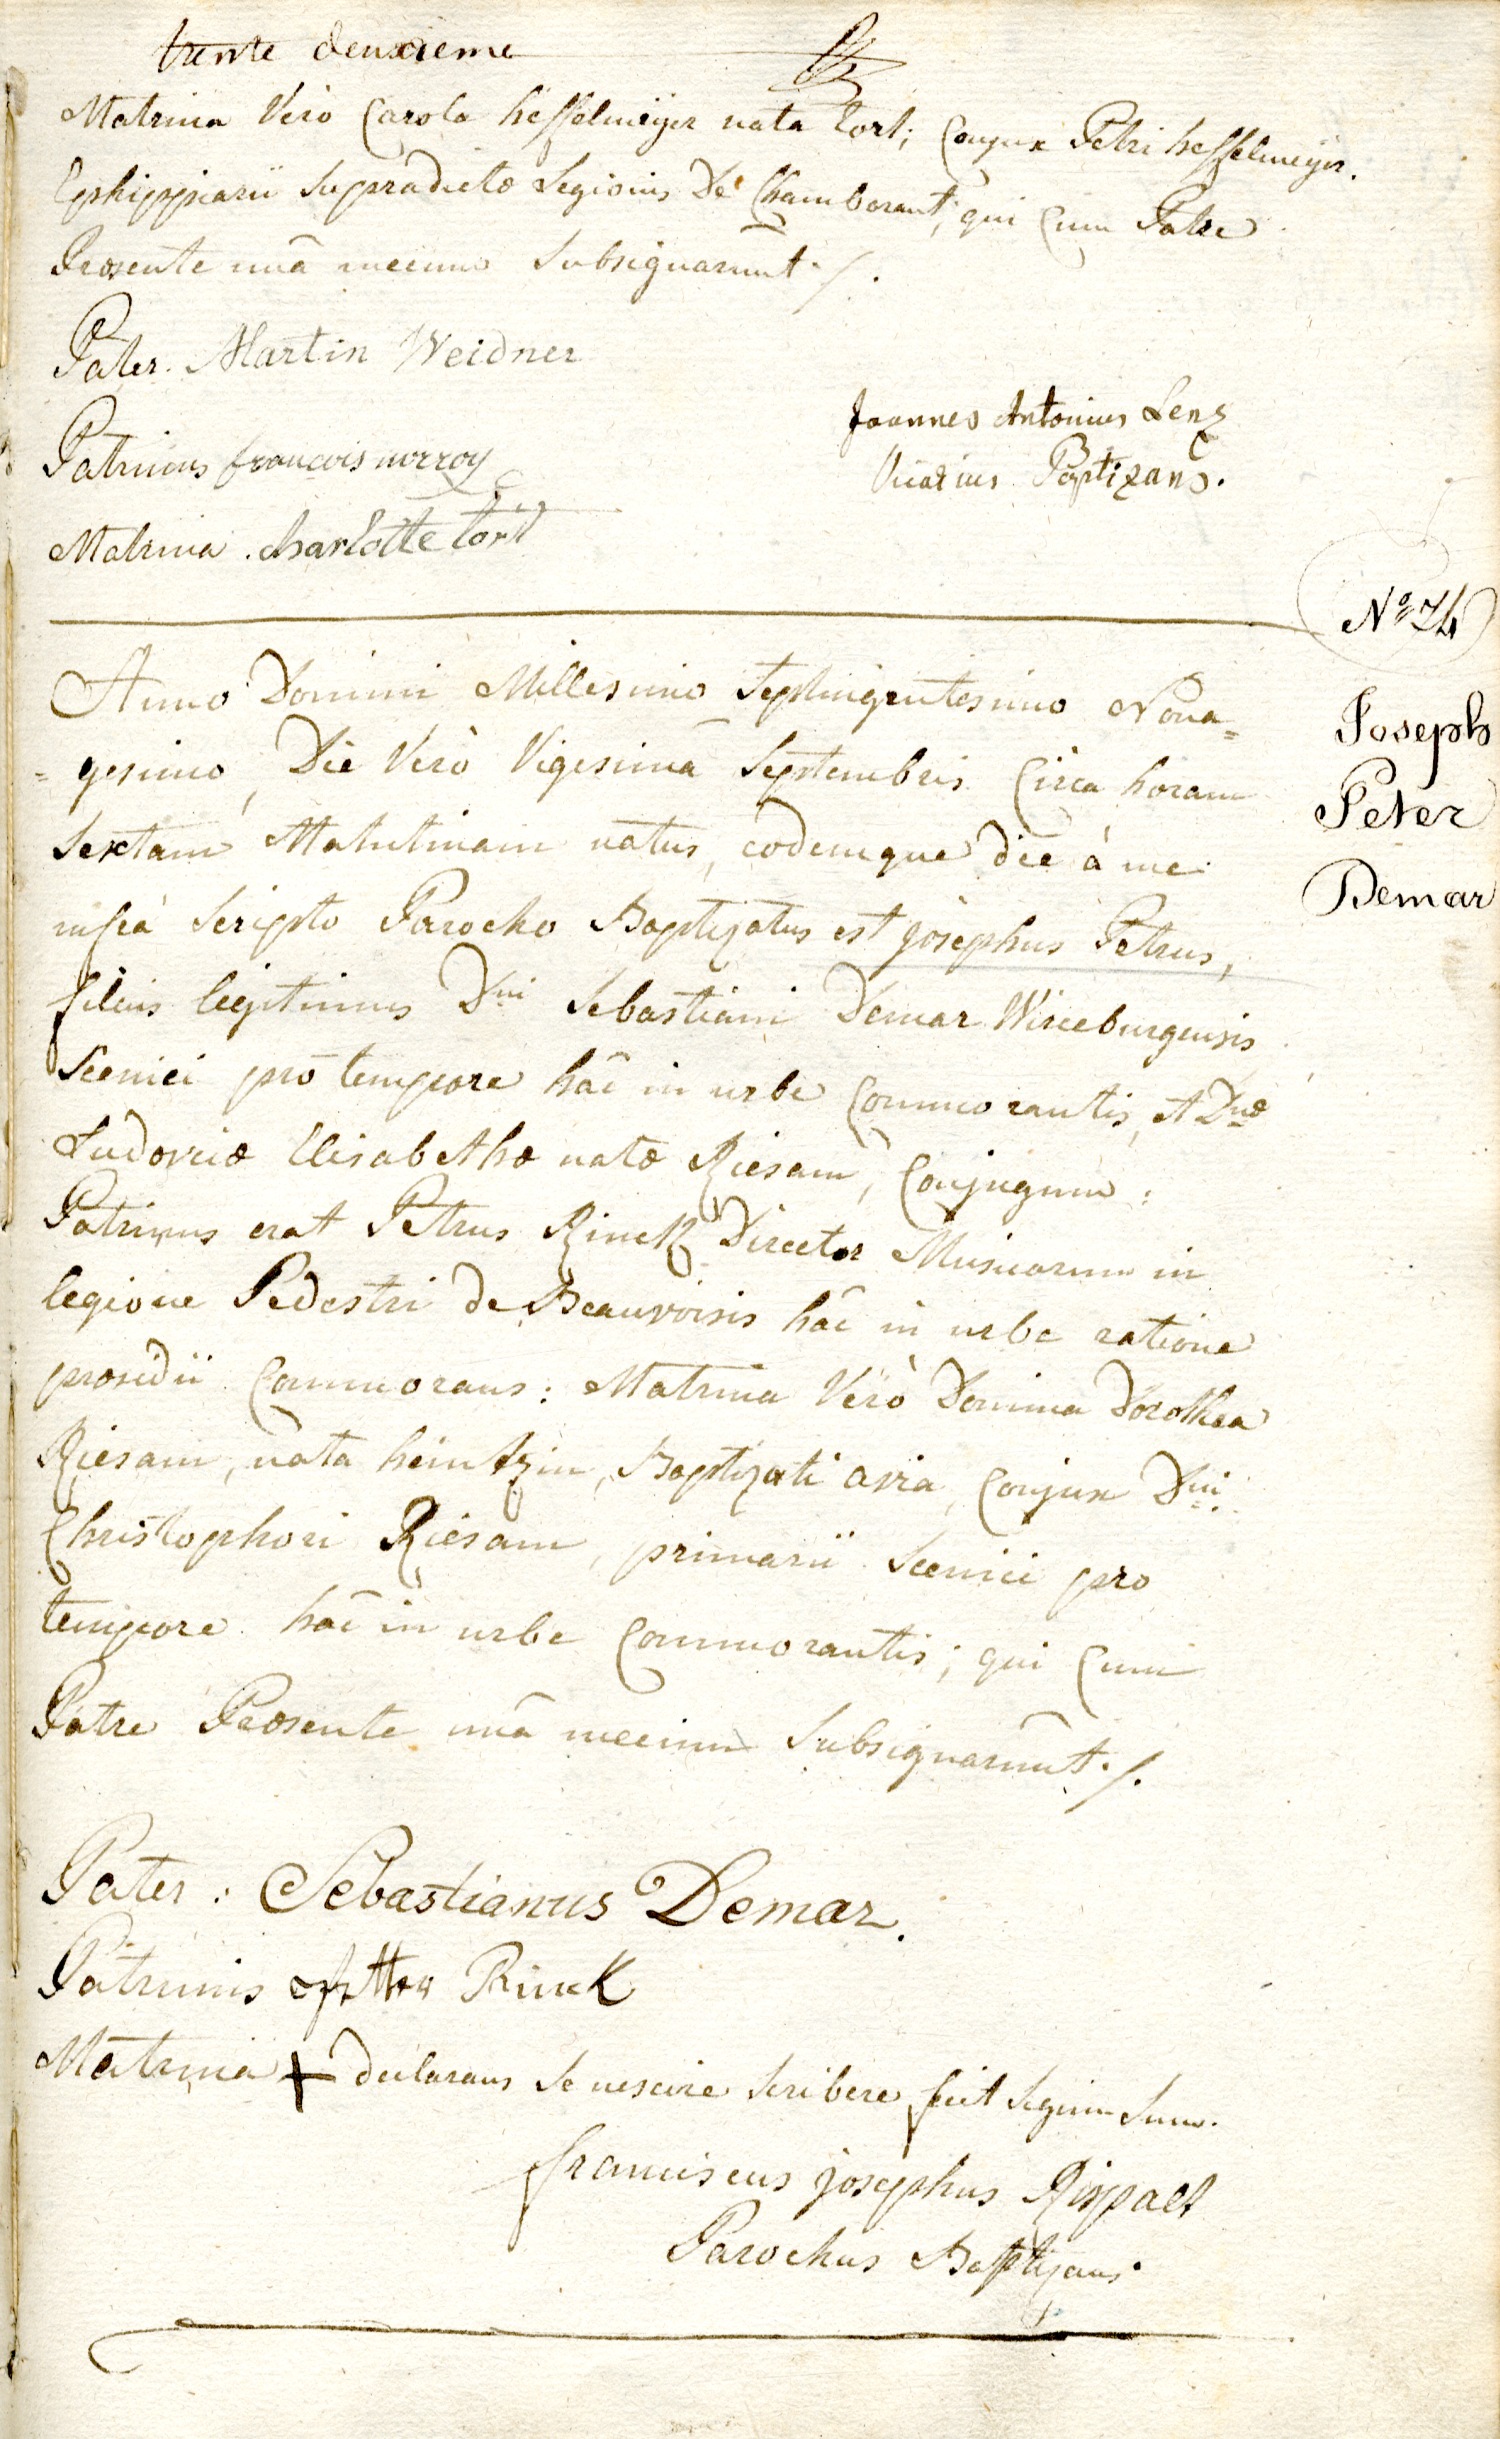 trente deuxieme
Matrina Verò Carola heffelmeÿer nata tort; Conjux Petri heffelmeÿer.
Ephippiarii Supradictæ Legionis De Chamborant; qui Cum Patre
Præsente unâ mecum Subsignarunt ./.
Pater. Martin Weidner
Joannes Antonius Lenz
Patrinus francois norroy
Vicarius Baptizans.
Matrina . charlotte tort
Nº 74
Anno Domini Millesimo Septingentesimo Nona=
Joseph
=gesimo, Die Verò Vigesimâ Septembris Circa horam
Peter
Sextam Matutinam natus, eodemque die à me
Demar
infra Scripto Parocho Baptizatus est josephus Petrus,
filius legitimus Dni Sebastiani Demar Wirceburgensis
Scenici pro tempore hâc in urbe Commorantis, et Dnæ
Ludovicæ Elisabethæ natæ Riesam, Conjugum :
Patrinus erat Petrus Rinck Director Musicorum in
legione Pedestri de Beauvoisis hâc in urbe ratione
præsidii Commorans : Matrina Verò Domina Dorothea
Riesam, nata heintzin, Baptizati avia, Conjux Dni
Christophori Riesam, primarii Scenici pro
tempore hâc in urbe Commorantis ; qui Cum
Patre Præsente unâ mecum Subsignarunt ./.
Pater : Sebastianus Demar.
Patrinus Rinck
Matrina + declarans Se nescire Scribere fecit Signum Suum.
franciscus josephus Rispalt
Parochus Baptizans.